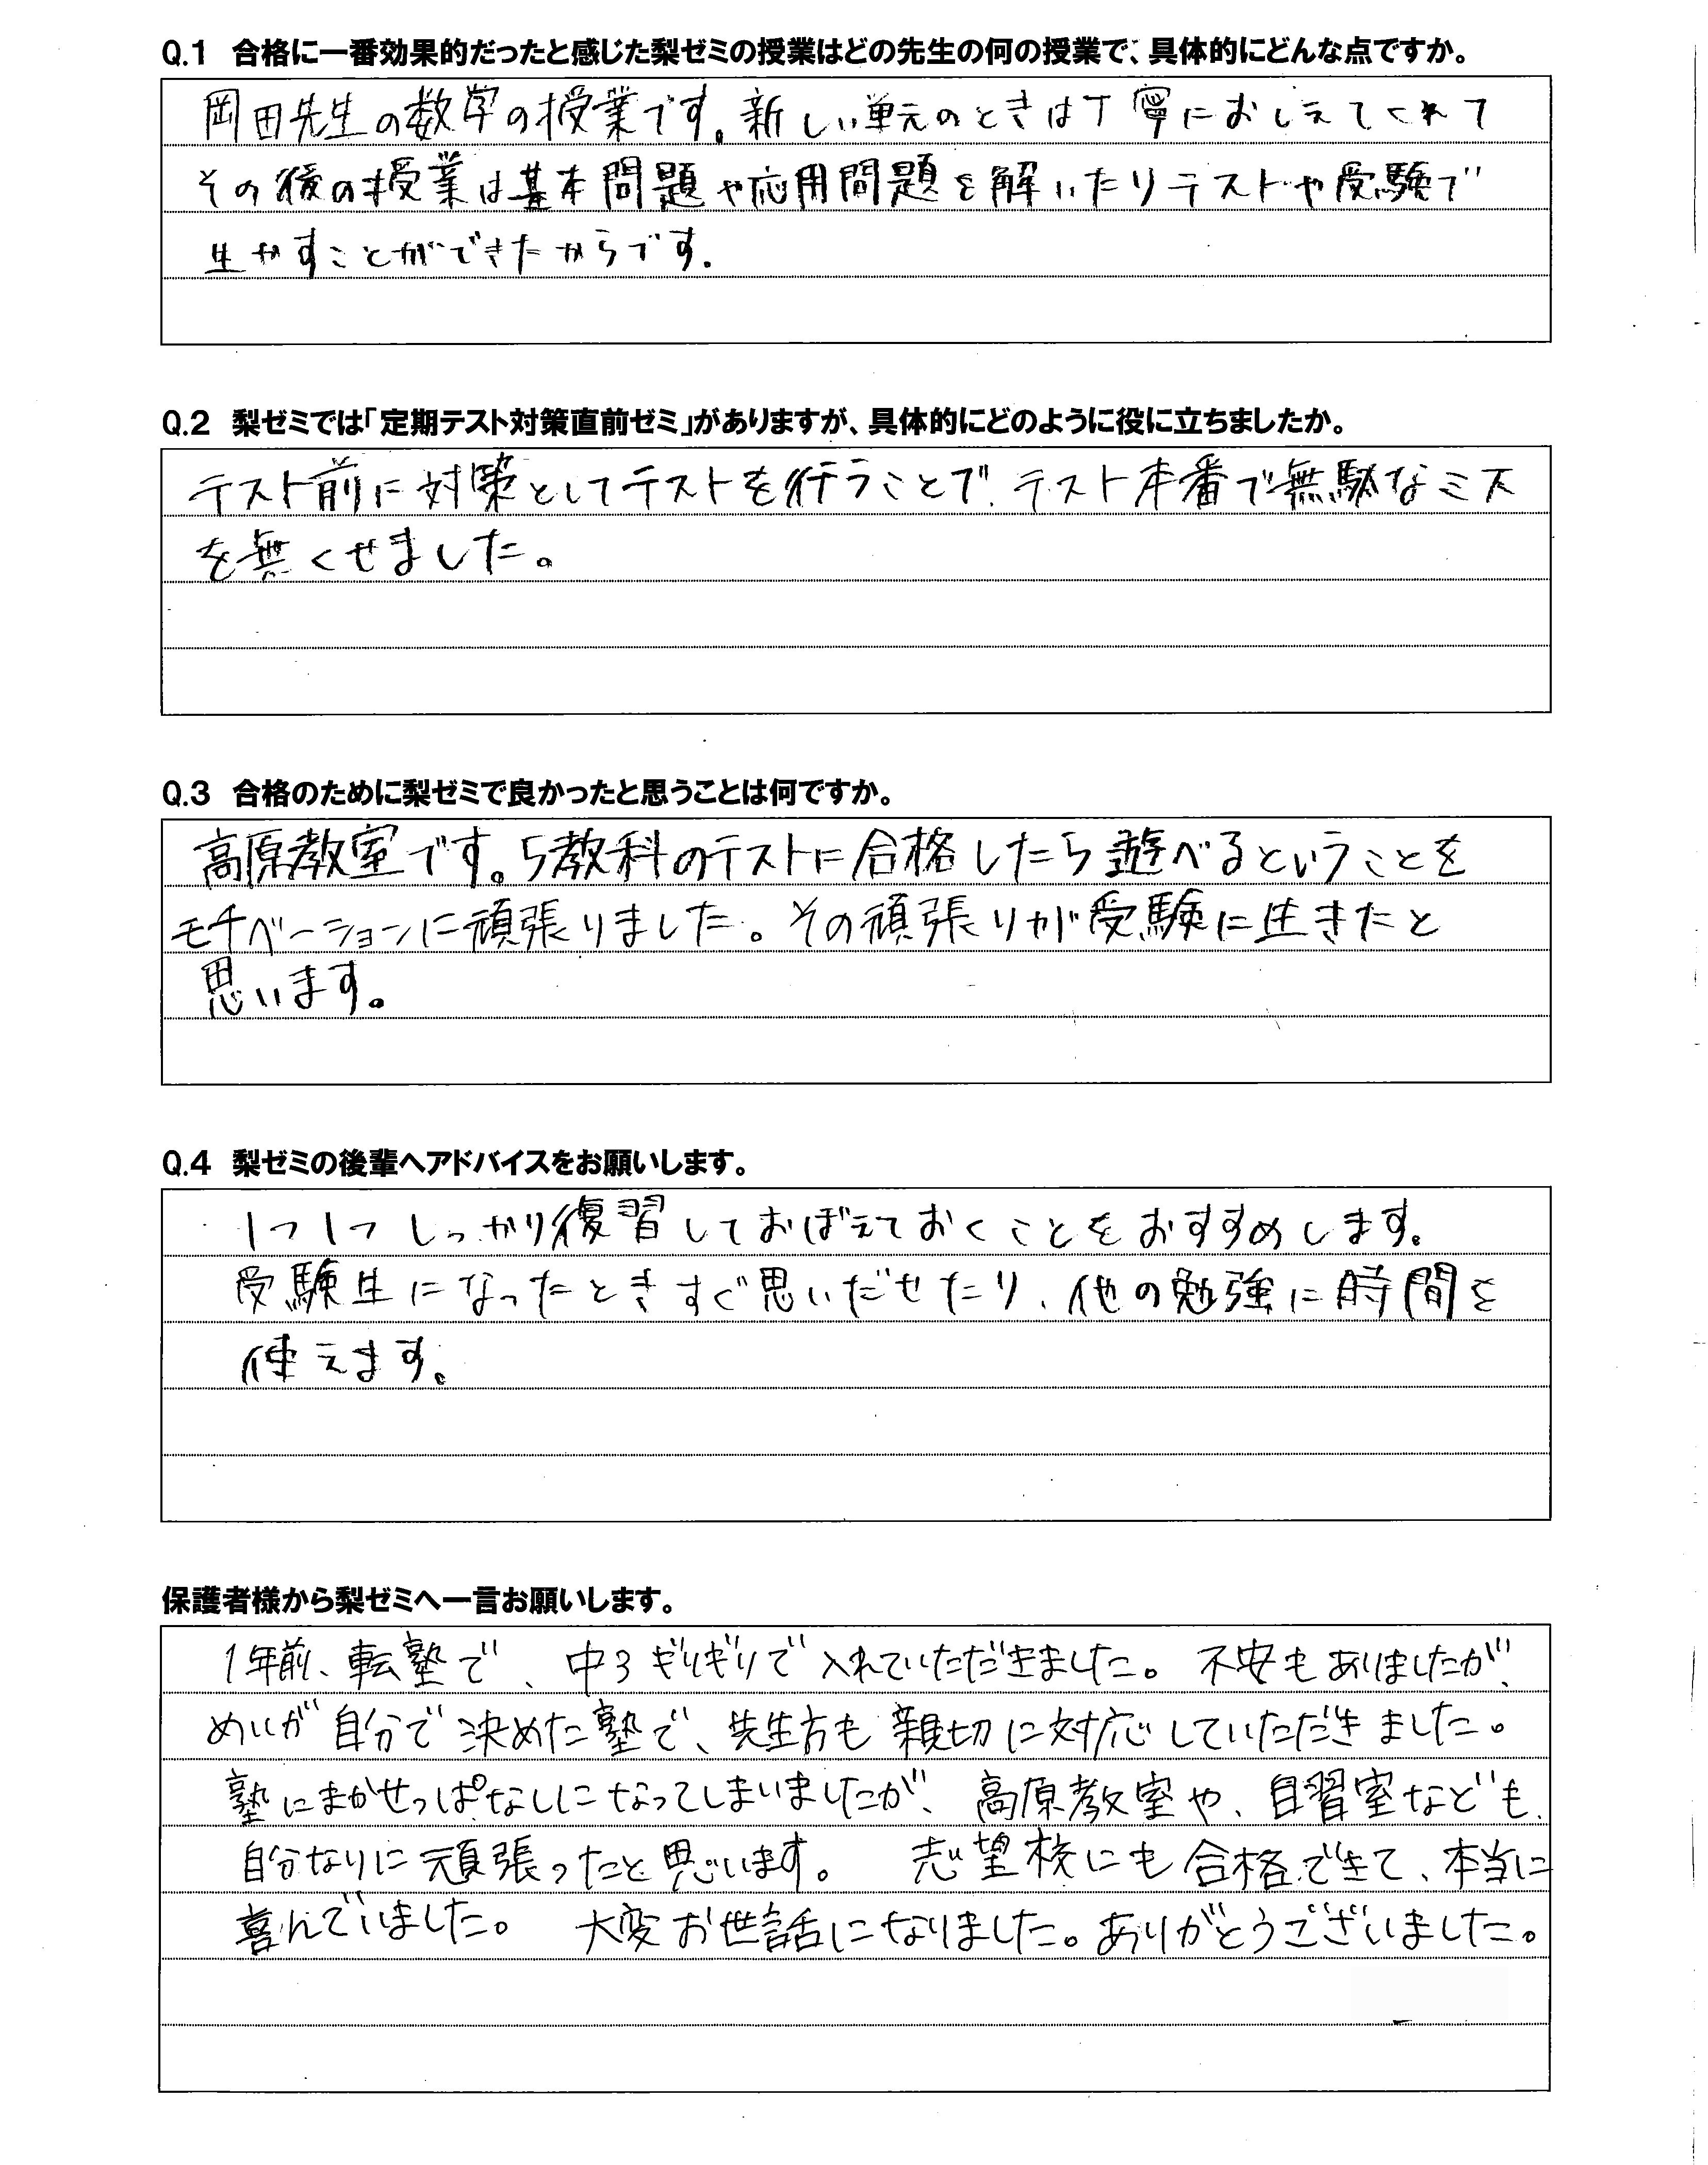 Q.1 合格に一番効果的だったと感じた梨ゼミの授業はどの先生の何の授業で、具体的にどんな点ですか。
岡田先生の数学の授業です。新しい単元のときは丁寧におしえてくれて
その後の授業は基本問題や応用問題を解いたりテストや受験で
生やすことができたからです。
Q.2 梨ゼミでは「定期テスト対策直前ゼミ」がありますが、具体的にどのように役に立ちましたか。
テスト前に対策としてテストを行うことで、テスト本番で無駄なミス
を無くせました。
Q.3 合格のために梨ゼミで良かったと思うことは何ですか。
高原教室です。5教科のテストに合格したら遊べるということを
モチベーションに頑張りました。その頑張りが受験に生きたと
思います。
Q.4 梨ゼミの後輩へアドバイスをお願いします。
1つ1つしっかり復習しておぼえておくことをおすすめします。
受験生になったときすぐ思いだせたり、他の勉強に時間を
使えます。
保護者様から梨ゼミへ一言お願いします。
1年前、転塾で、中3ギリギリで入れていただきました。不安もありましたが、
めいが自分で決めた塾で、先生方も親切に対応していただきました。
塾にまかせっぱなしになってしまいましたが、高原教室や、自習室なども、
自分なりに頑張ったと思います。 志望校にも合格できて、本当に
喜んでいました。 大変お世話になりました。ありがとうございました。